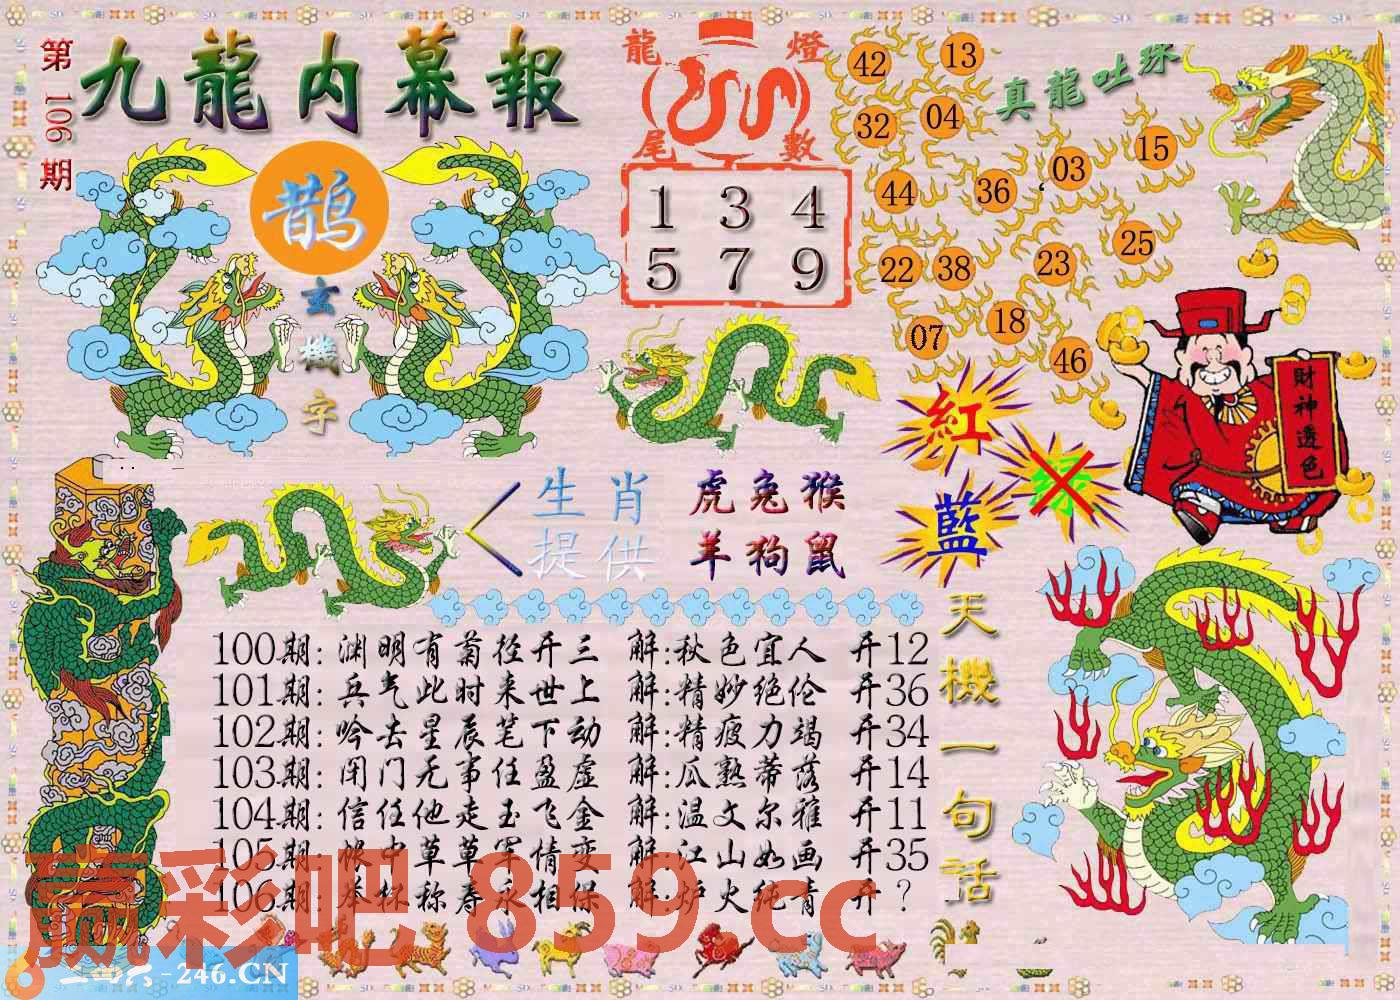 第106期
九龍内幕報
鹊
玄機字
龍燈尾數
1 3 4
5 7 9
真龍吐珠
42 13
32 04
44 36 03 15
22 38 23 25
07 18 46
紅
藍
绿
財神透色
生肖提供
虎兔猴
羊狗鼠
100期: 渊明有菊径开三 解:秋色宜人 开12
101期: 兵气此时来世上 解:精妙绝伦 开36
102期: 吟去星辰笔下动 解:精疲力竭 开34
103期: 闭门无事任盈虚 解:瓜熟蒂落 开14
104期: 信任他走玉飞金 解:温文尔雅 开11
105期: 帐中草草军情变 解:江山如画 开35
106期: 举杯称寿永相保 解:炉火纯青 开?
天機一句话
赢彩吧 859.cc
二四六-246.CN